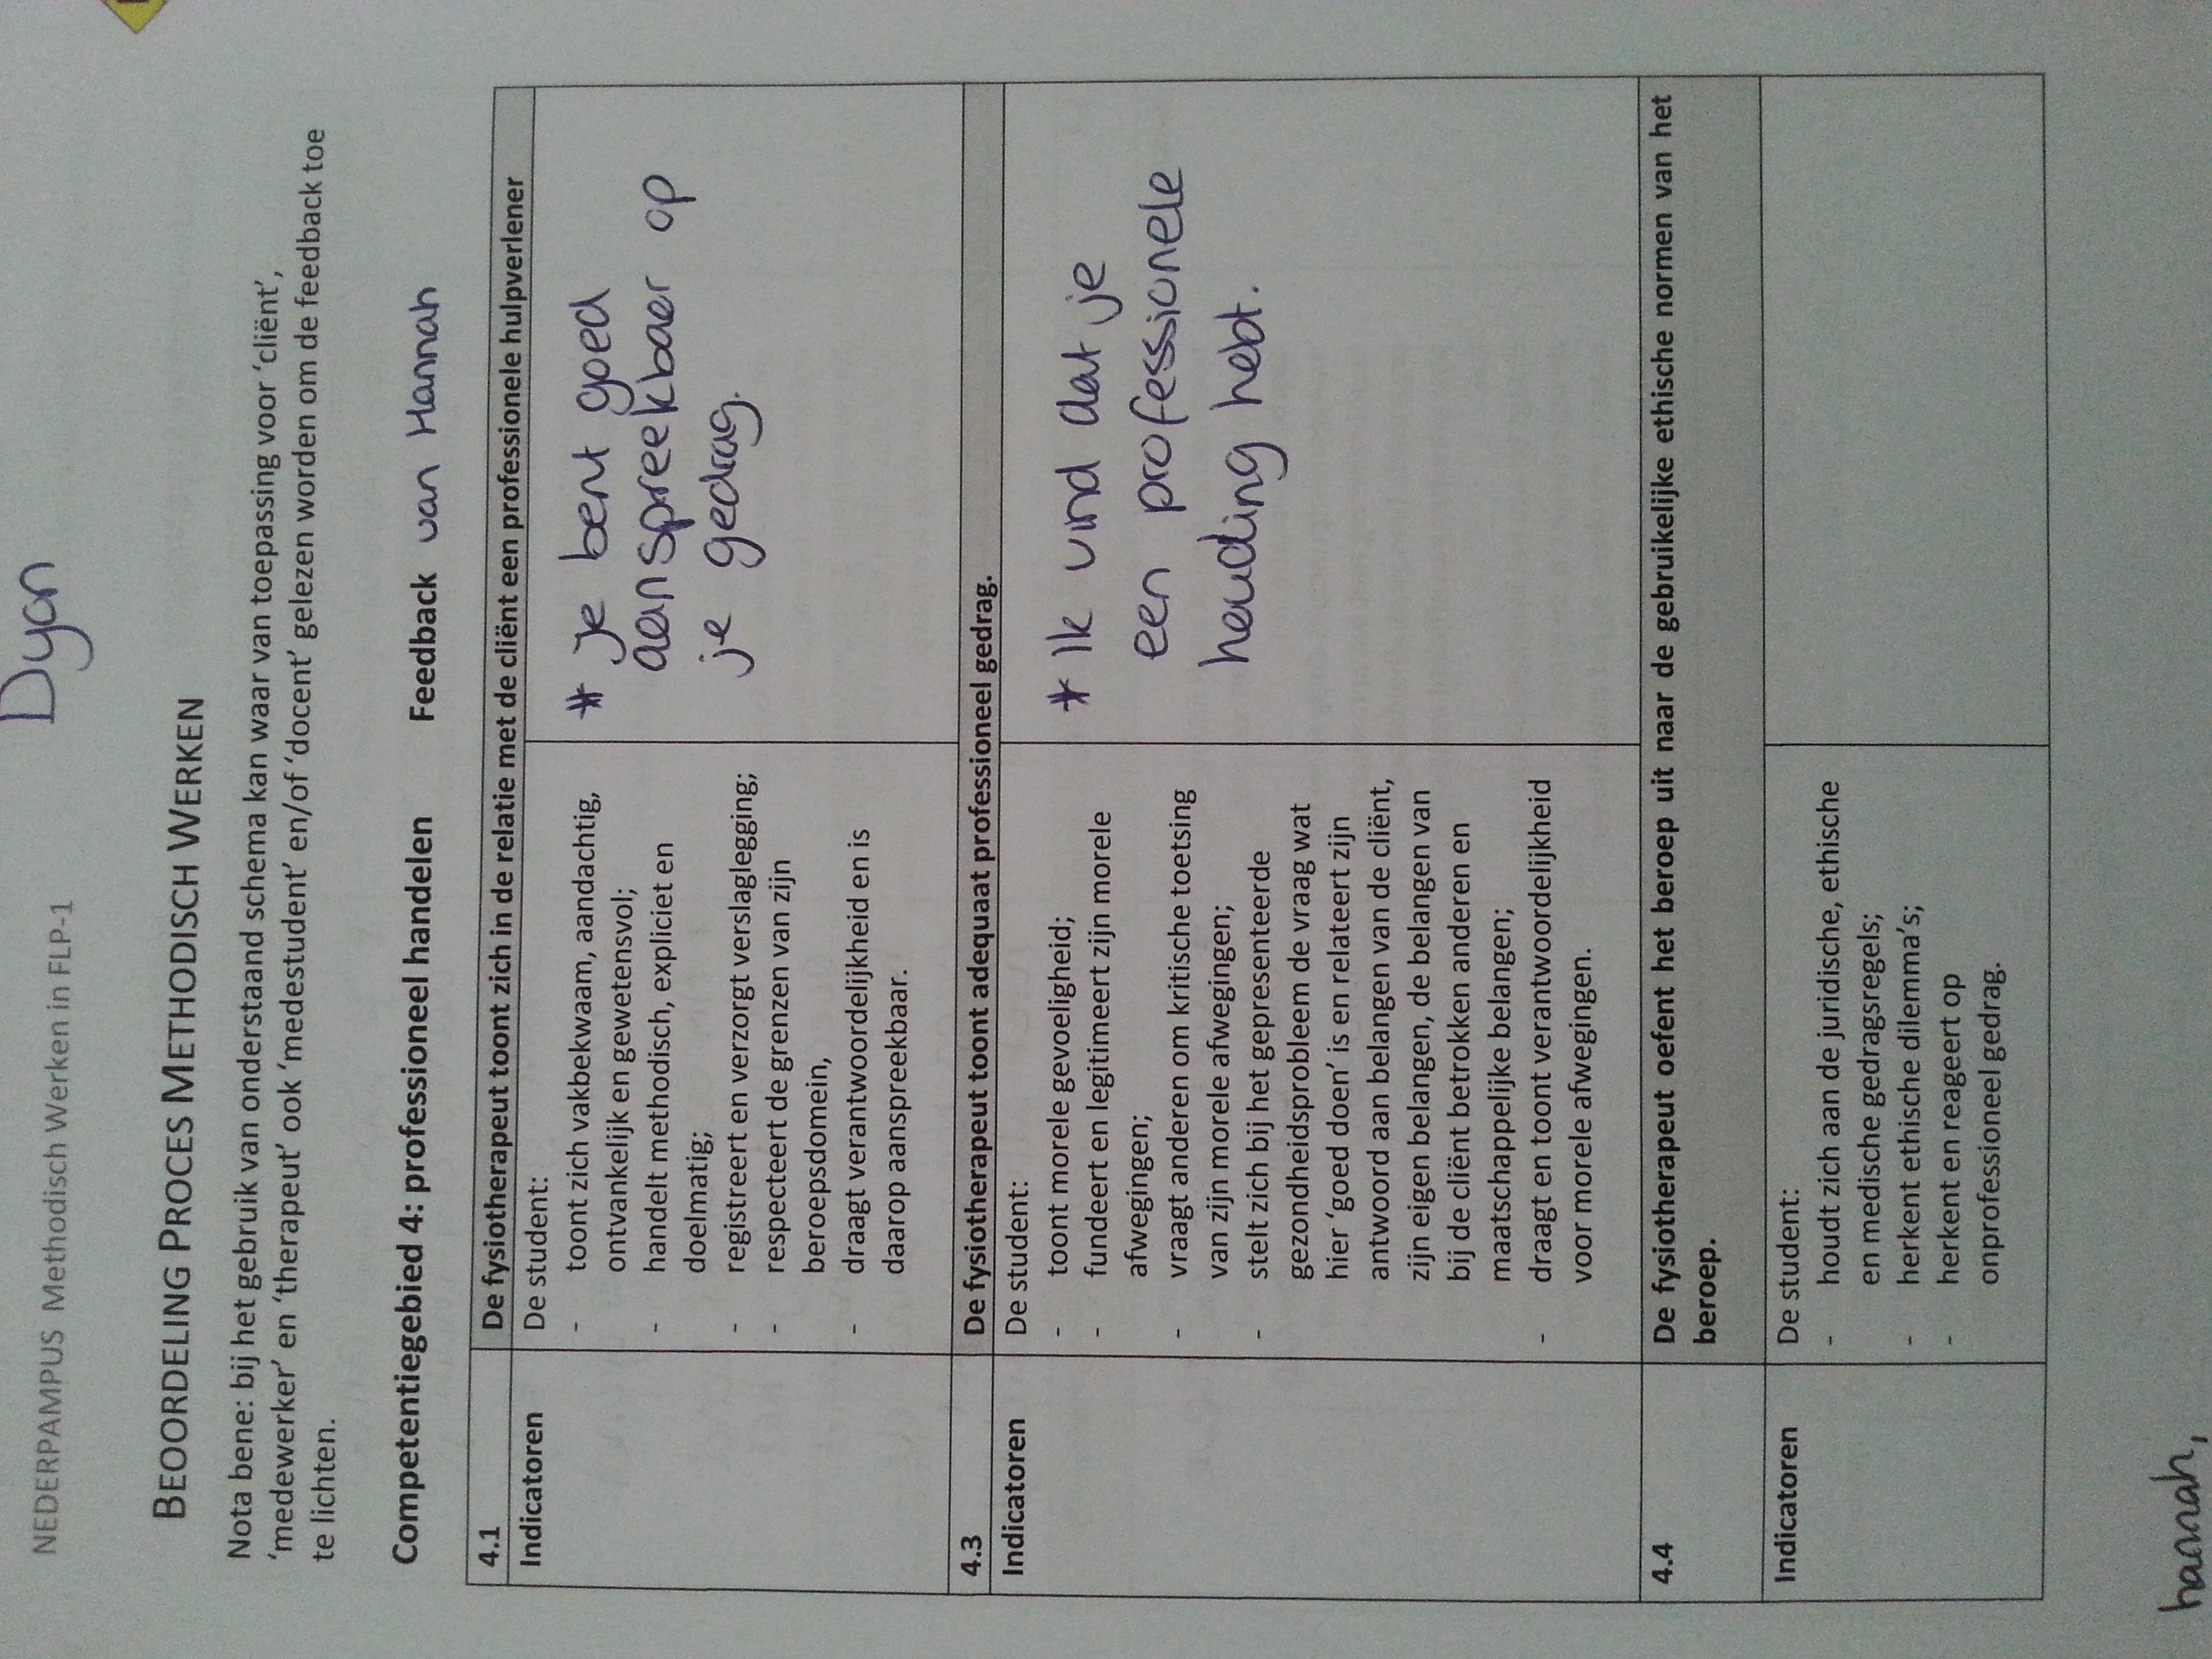 Dyon
NEDERPAMPUS Methodisch Werken in FLP-1
BEOORDELING PROCES METHODISCH WERKEN
Nota bene: bij het gebruik van onderstaand schema kan waar van toepassing voor ‘cliënt’,
‘medewerker’ en ‘therapeut’ ook ‘medestudent’ en/of ‘docent’ gelezen worden om de feedback toe
te lichten.
Competentiegebied 4: professioneel handelen Feedback van Hannah
4.1 De fysiotherapeut toont zich in de relatie met de cliënt een professionele hulpverlener
Indicatoren
De student:
- toont zich vakbekwaam, aandachtig,
ontvankelijk en gewetensvol;
- handelt methodisch, expliciet en
doelmatig;
- registreert en verzorgt verslaglegging;
- respecteert de grenzen van zijn
beroepsdomein,
- draagt verantwoordelijkheid en is
daarop aanspreekbaar.
* je bent goed
aanspreekbaar op
je gedrag.
4.3 De fysiotherapeut toont adequaat professioneel gedrag.
Indicatoren
De student:
- toont morele gevoeligheid;
- fundeert en legitimeert zijn morele
afwegingen;
- vraagt anderen om kritische toetsing
van zijn morele afwegingen;
- stelt zich bij het gepresenteerde
gezondheidsprobleem de vraag wat
hier ‘goed doen’ is en relateert zijn
antwoord aan belangen van de cliënt,
zijn eigen belangen, de belangen van
bij de cliënt betrokken anderen en
maatschappelijke belangen;
- draagt en toont verantwoordelijkheid
voor morele afwegingen.
* Ik vind dat je
een professionele
houding hebt.
4.4 De fysiotherapeut oefent het beroep uit naar de gebruikelijke ethische normen van het
beroep.
Indicatoren
De student:
- houdt zich aan de juridische, ethische
en medische gedragsregels;
- herkent ethische dilemma’s;
- herkent en reageert op
onprofessioneel gedrag.
hannah,